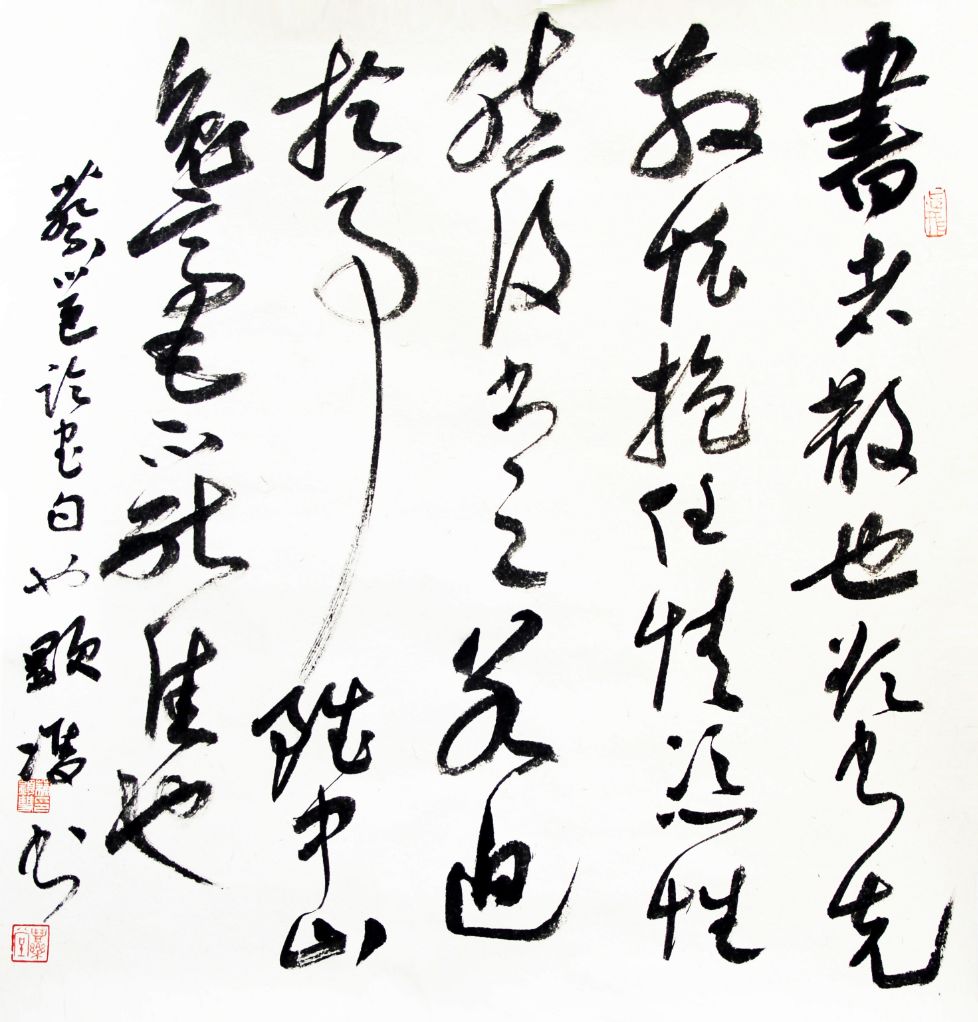 書者散也欲書先
散懷抱任情恣性
然後書之若迫
於事雖中山
兔毫不能佳也
蔡邕論書句也 顯 書